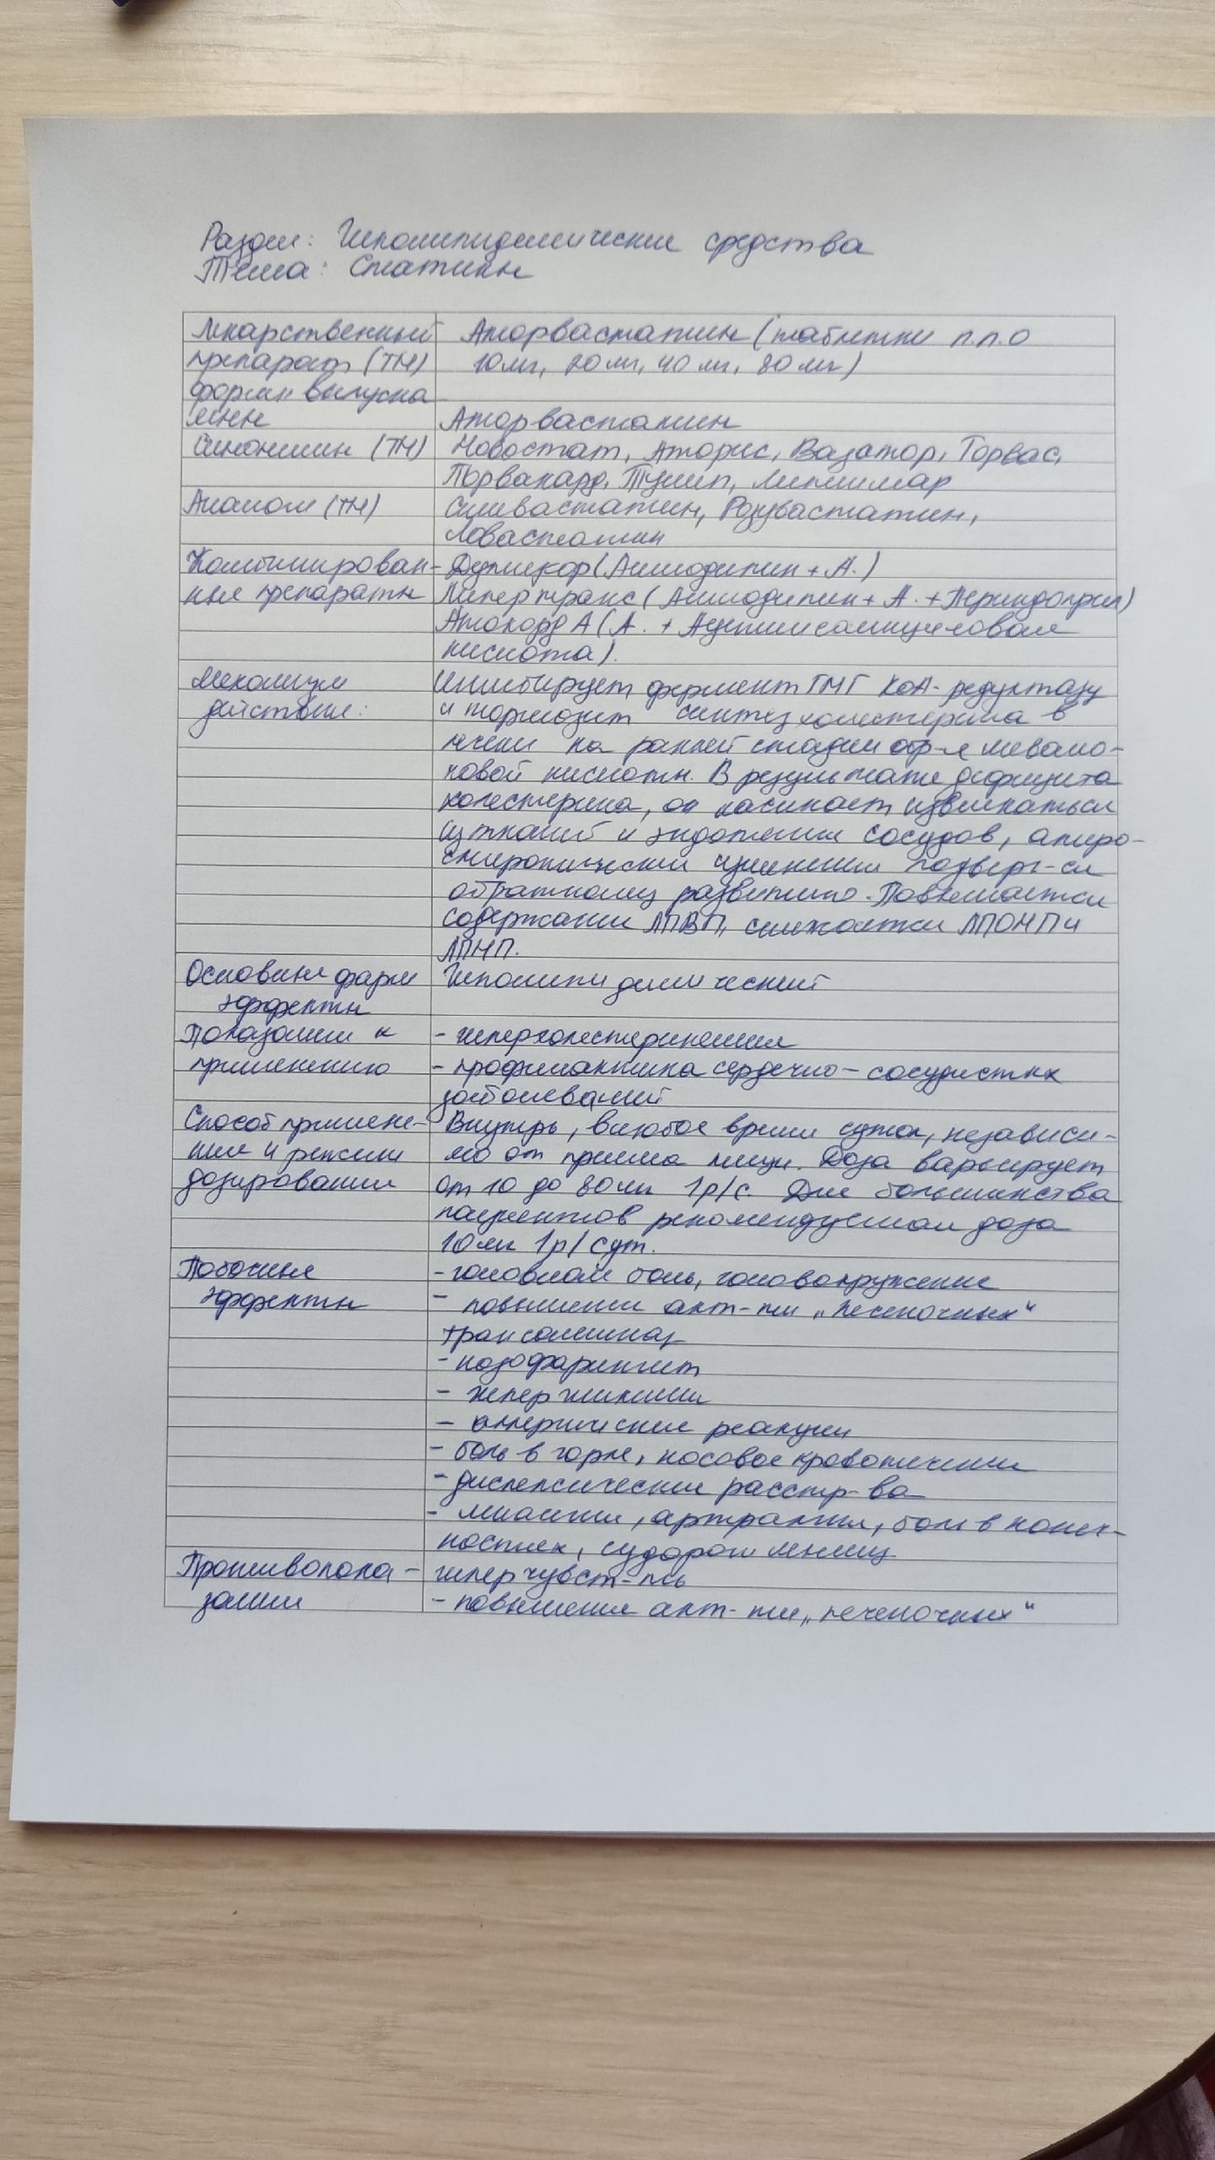 Раздел: Гиполипидемические средства
Тема: Статины
Лекарственный Аторвастатин (таблетки п.п.о
препарат (ТН) 10 мг, 20 мг, 40 мг, 80 мг)
формы выпуска
МНН Аторвастатин
Синонимы (ТН) Новостат, Аторис, Вазатор, Торвас,
Торвакард, Тулип, Липримар
Аналоги (ТН) Симвастатин, Розувастатин,
Ловастатин
Комбинирован- Дуплекор (Амлодипин + А.)
ные препараты Липертранс (Амлодипин + А. + Периндоприл)
А (А. + Ацетилсалициловая
кислота).
Механизм Ингибирует фермент ГМГ КоА-редуктазу
действия: и тормозит синтез холестерина в
печени на ранней стадии обр-я мевало-
новой кислоты. В результате дефицита
холестерина, он начинает извлекаться
из тканей и эндотелии сосудов, атеро-
склеротически изменении подверг-ся
обратному развитию. Повышается
содержание ЛПВП, снижается ЛПОНП и
ЛПНП.
Основные фарм Гиполипидемический
эффекты
Показания к - гиперхолестеринемия
применению - профилактика сердечно-сосудистых
заболеваний
Способ примене- Внутрь, в любое время суток, независи-
ния и режим мо от приема пищи. Доза варьирует
дозирования от 10 до 80 мг 1р/с. Для большинства
пациентов рекомендуемая доза
10 мг 1р/сут.
Побочные - головная боль, головокружение
эффекты - повышение акт-ти „печеночных“
трансаминаз
- назофарингит
- гипергликемия
- аллергические реакции
- боль в горле, носовое кровотечение
- диспепсические расстр-ва
- миалгии, артралгии, боль в конеч-
ностях, судороги мышц
Противопока- гиперчувст-ть
зания - повышение акт-ти „печеночных“